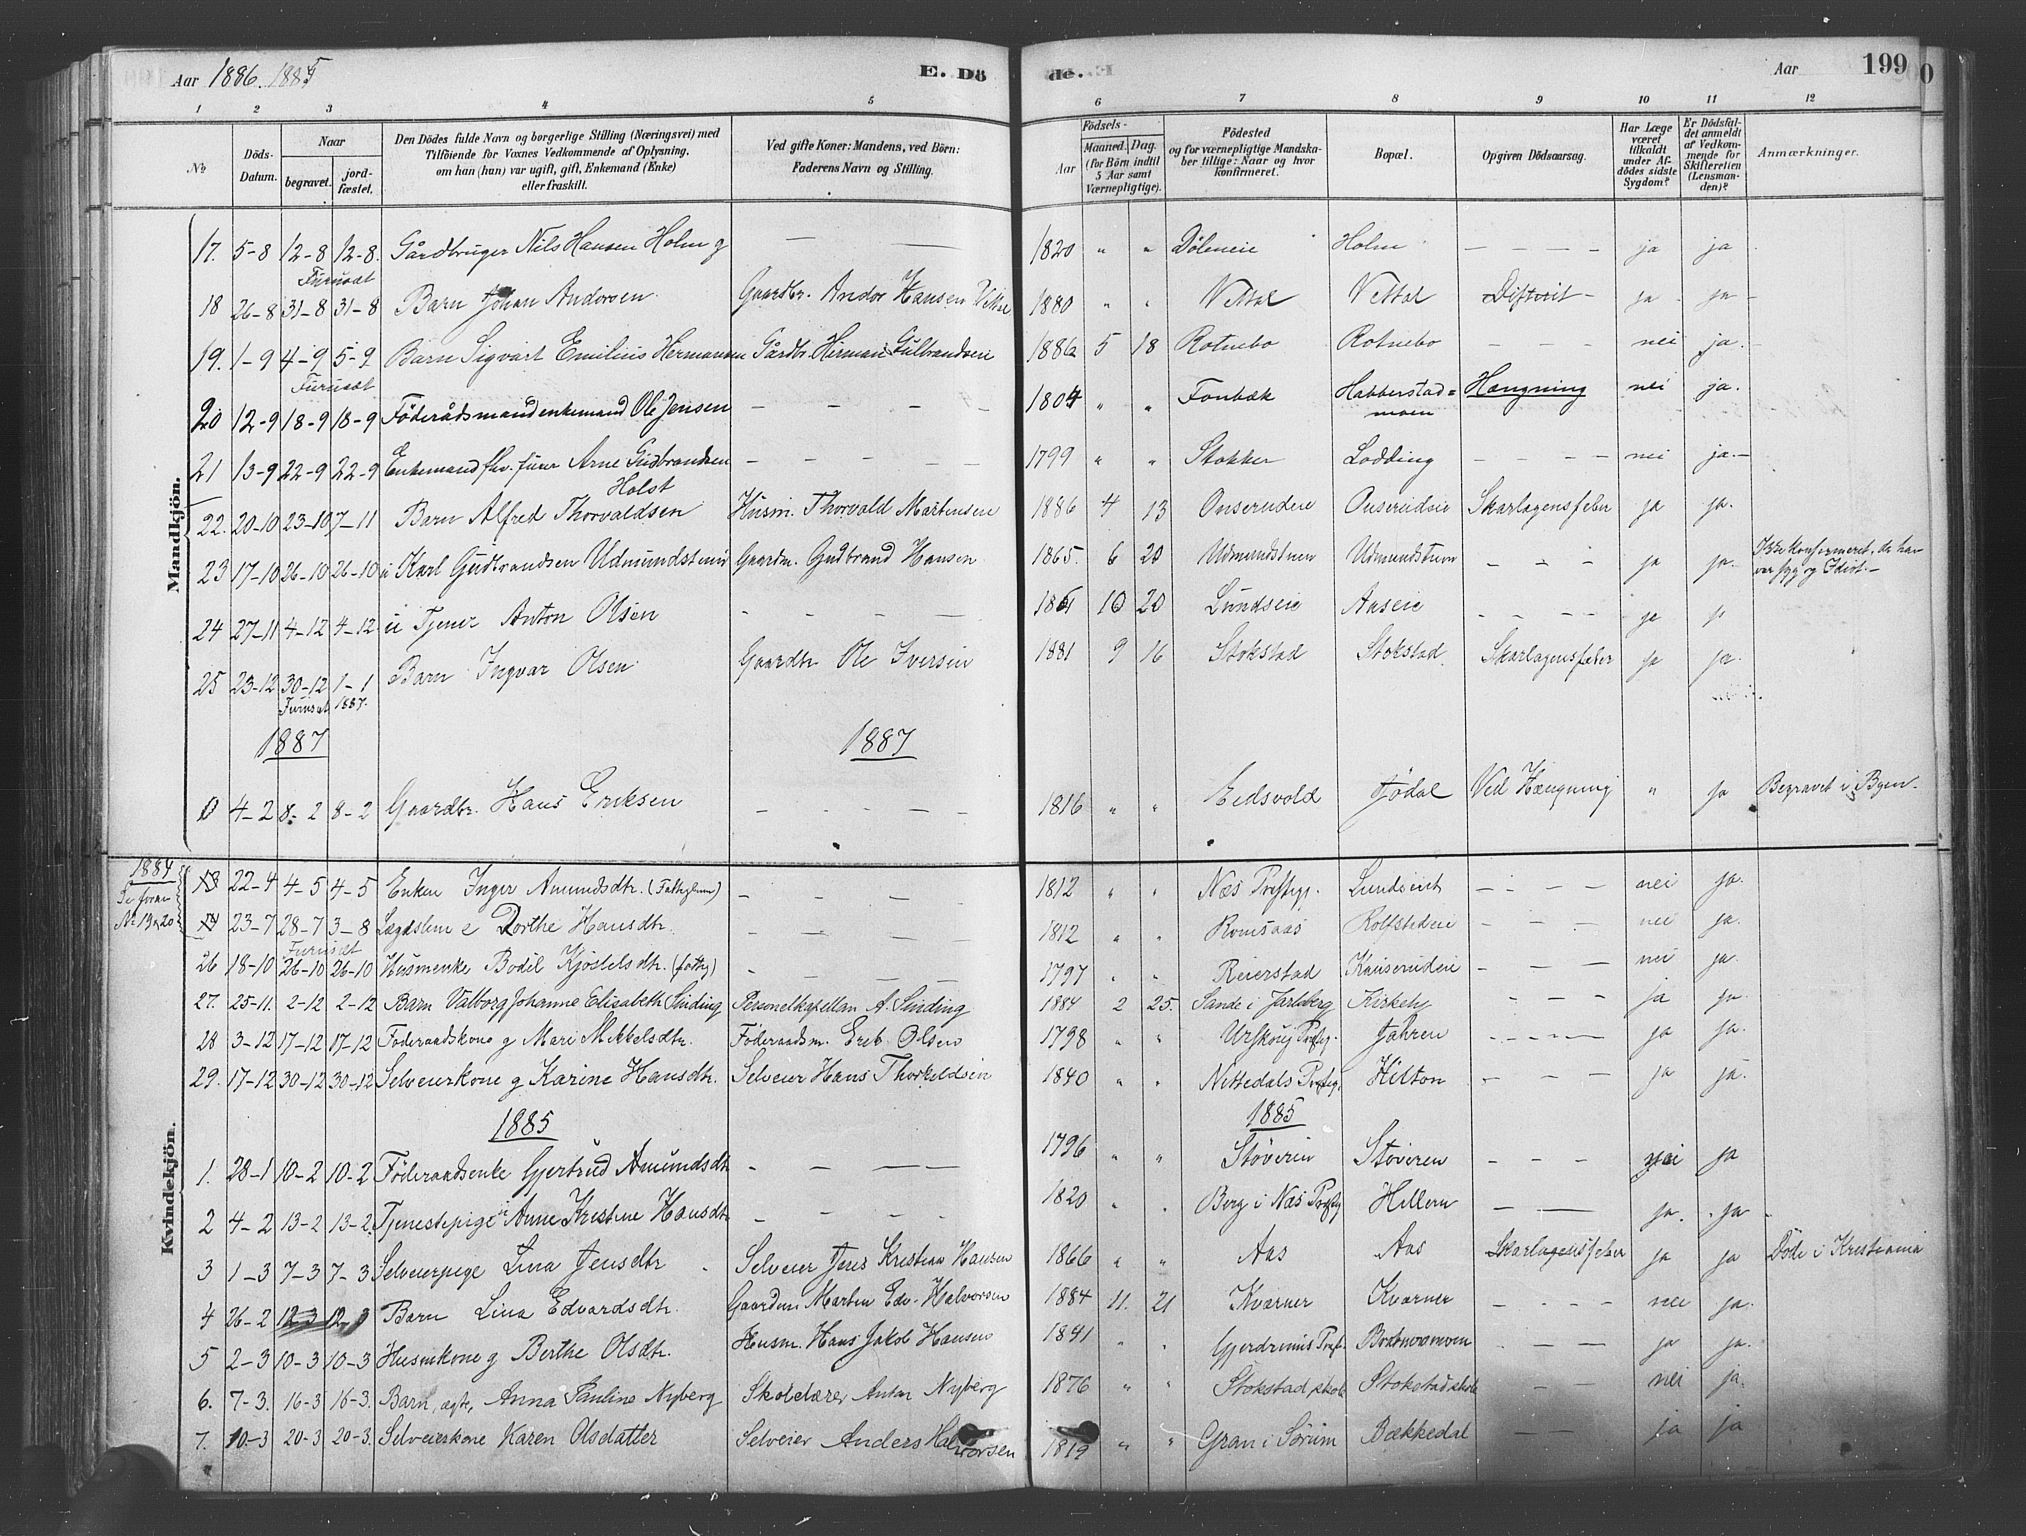 Aar 1886. 1885 E. Dö de. Aar 199
1 2 3 4 5 6 7 8 9 10 11 12
No Döds-Datum. Naar begravet. jord-fæstet. Den Dödes fulde Navn og borgerlige Stilling (Næringsvei) med Tilföiende for Voxnes Vedkommende af Oplysning, om han (hun) var ugift, gift, Enkemand (Enke) eller fraskilt. Ved gifte Koner: Mandens, ved Börn: Faderens Navn og Stilling. Födsels- Aar Maaned. Dag. (for Börn indtil 5 Aar samt Værnepligtige). Födested og for værnepligtige Mandska-ber tillige: Naar og hvor konfirmeret. Bopæl. Opgiven Dödsaarsag. Har Læge været tilkaldt under Af-dödes sidste Sygdom? Er Dödsfal-det anmeldt af Vedkom-mende for Skifteretten (Lensman-den)? Anmærkninger.
Mandkjön.
17. 5-8 12-8 12-8. Gårdbruger Nils Hansen Holm g — — 1820 " " Döleneie Holm — — — — ja ja
Furusæt
18 26-8 31-8 31-8 Barn Johan Andersen Gaardbr. Andor Hansen Vettal 1880 " " Vettal Vettal Difterit - ja - ja -
19. 1-9 4-9 5-9 Barn Sigvart Emilius Hermansen Gårdbr. Herman Gulbrandsen 1886 5 18 Rotnebo Rotnebo — — — nei ja.
Furusæt
20 12-9 18-9 18-9 Föderådsmand enkemand Ole Jensen — — — — 1804 " " Fonbæk Habberstad= moen Hængning nei ja.
21 13-9 22-9 22-9 Enkemand fhv. furer Arne Gudbrandsen Holst — — — — — 1799 " " Stokker Lodding — — — — nei ja. -
22. 20-10 23-10 7-11 Barn Alfred Thorvaldsen Husm. Thorvald Martinsen 1886 4 13 Onserudeie Onserudeie Skarlagensfeber ja ja.
23 17-10 26-10 26-10 u Karl Gudbrandsen Udmundstuen Gaardm. Gudbrand Hansen 1865. 6 20 Udmundstuen Udmundstuen — — — ja ja. Ikke konfirmeret, da han var syg og Idiot. -
24 27-11 4-12 4-12 u Tjener Anton Olsen — — — — 10 20 Lundseie Aaseie — — — — ja ja
25 23-12 30-12 1-1 1887. Barn Ingvar Olsen Gaardbr Ole Iversen 1881 9 16 Stokstad Stokstad Skarlagensfeber ja ja.
Furusæt
1887 1887
0 4-2 8-2 8-2 Gaardbr. Hans Eriksen — — — — 1816 " " Eidsvold Jödal Ved Hængning " ja Begravet i Byen.
Kvindekjön.
1884
Se foran No 19 & 20
13 22-4 4-5 4-5 Enken Inger Amundsdtr. (Fattiglem) — — — — 1812 " " Næs Prstgj. Lundseiet — — — — nei ja.
14 23-7 28-7 3-8 Lægdslem e Dorthe Hansdtr. — — — — 1812 " " Romsaas Rolfstadeie — — — nei ja.
Furusæt
26 18-10 26-10 26-10 Husmenke Bodil Kjöstelsdtr. (fattig) — — — — 1797 " " Reierstad Kauserudeie — — — — nei ja.
27. 25-11. 2-12 2-12 Barn Valborg Johanne Elisabeth Sinding Personelkapellan A. Sinding 1884 2 25. Sande i Jarlsberg Kirkeby — — — ja ja.
28 3-12 17-12 17-12 Föderaadskone g Mari Mikkelsdtr. Föderaadsm. Erik Olsen 1798 " " Urskoug Prstgj. Jahren — — — — ja ja.
29. 17-12 30-12 30-12 Selveierkone g Karine Hansdtr. Selveier Hans Thorkeldsen 1840 " " Nittedals Prstgj. Hilton — — — ja ja.
1885 1885
1. 28-1 10-2 10-2 Föderaadsenke Gjertrud Amundsdtr — — — — 1796 " " Stöveren Stöveren — — — nei ja
2 4-2 13-2 13-2 Tjenestepige u Anne Kristine Hansdtr — — — — 1820 " " Berg i Næs Prstgj Hellern — — ja. ja
3 1-3 7-3 7-3 Selveierpige Lina Jensdtr Selveier Jens Kristian Hansen 1866 " " Aas Aas Skarlagensfeber ja ja Döde i Kristiania
4 26-2 12-3 12-3 Barn Lina Edvardsdtr. Gaardm Marten Edv. Halvorsen 1884 11. 21 Kværner Kværner — — — — nei ja.
5 2-3 10-3 10-3 Husmkone g Berthe Olsdtr. Husm. Hans Jakob Hansen 1841 " " Gjerdrums Prst. — — — ja ja.
6. 7-3. 16-3 16-3. Barn, ægte, Anna Pauline Nyberg Skolelærer Anton Nyberg 1876 " " Stokstad skole Stokstad skole — — nei ja.
7. 10-3 20-3 20-3. Selveierkone Karen Olsdatter Selveier Anders Halvorsen 1819 " " Gran i Sörum Bækkedal — — ja ja